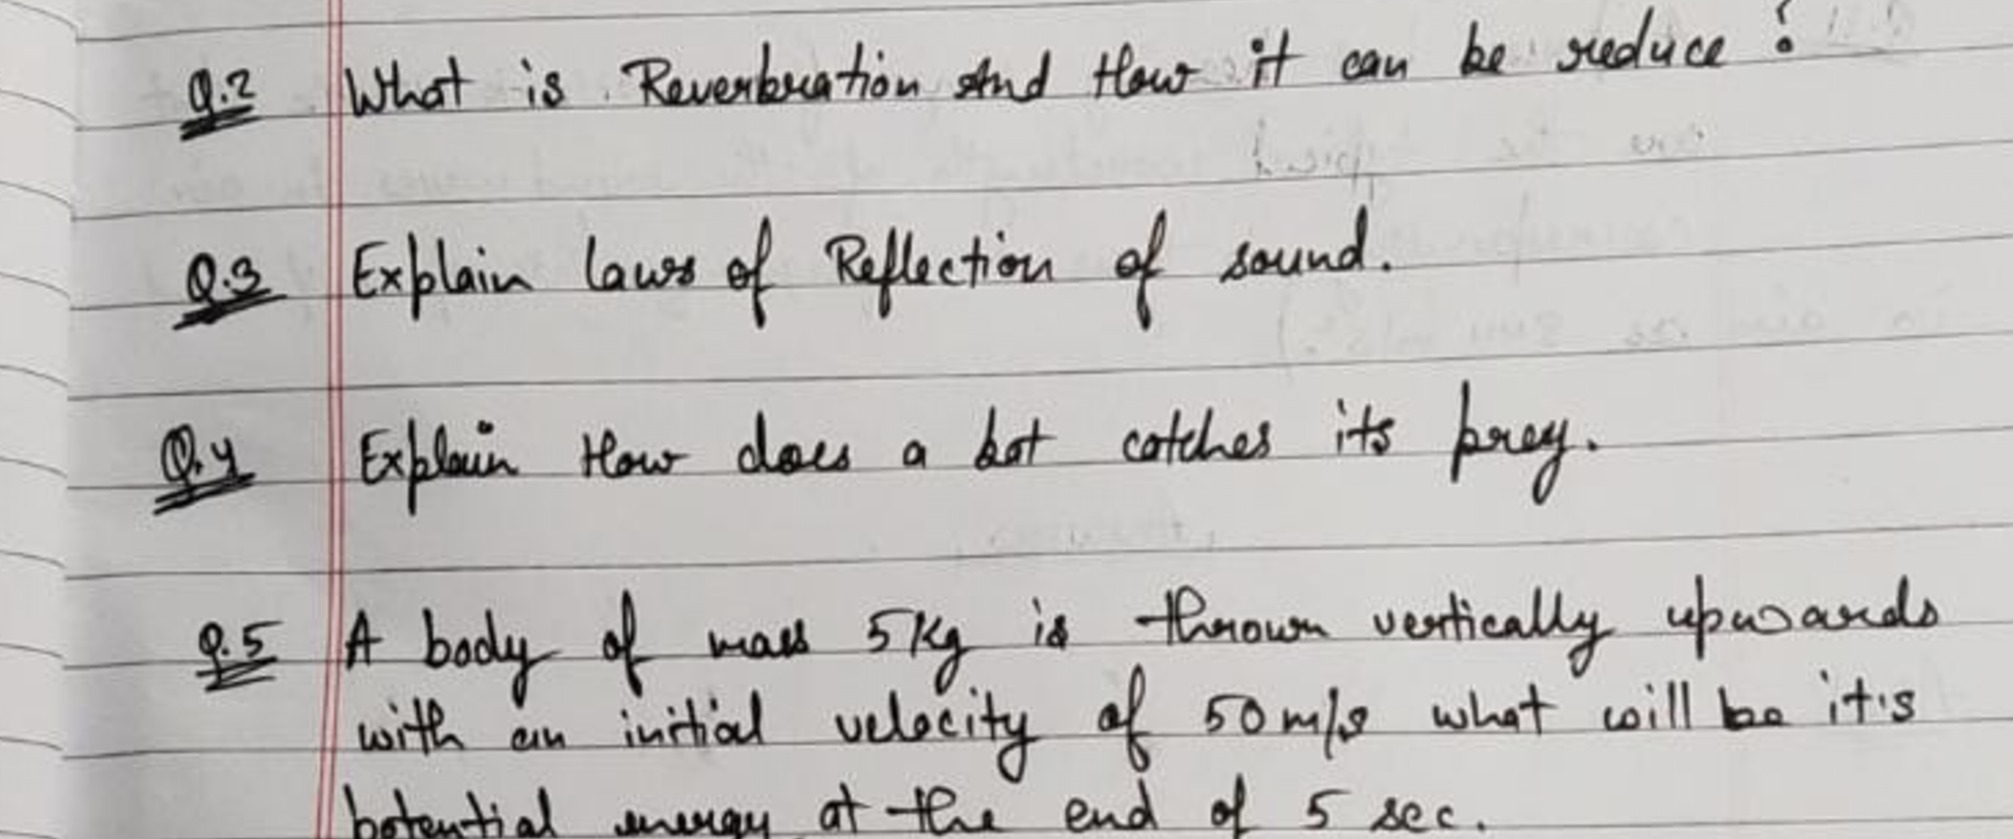 Q.2 What is Reverbration And How it can be reduce ?
Q.3 Explain laws of Reflection of sound.
Q.4 Explain How does a bat catches its prey.
Q.5 A body of mass 5Kg is thrown vertically upwards
with an initial velocity of 50 m/s what will be it's
potential energy at the end of 5 sec.